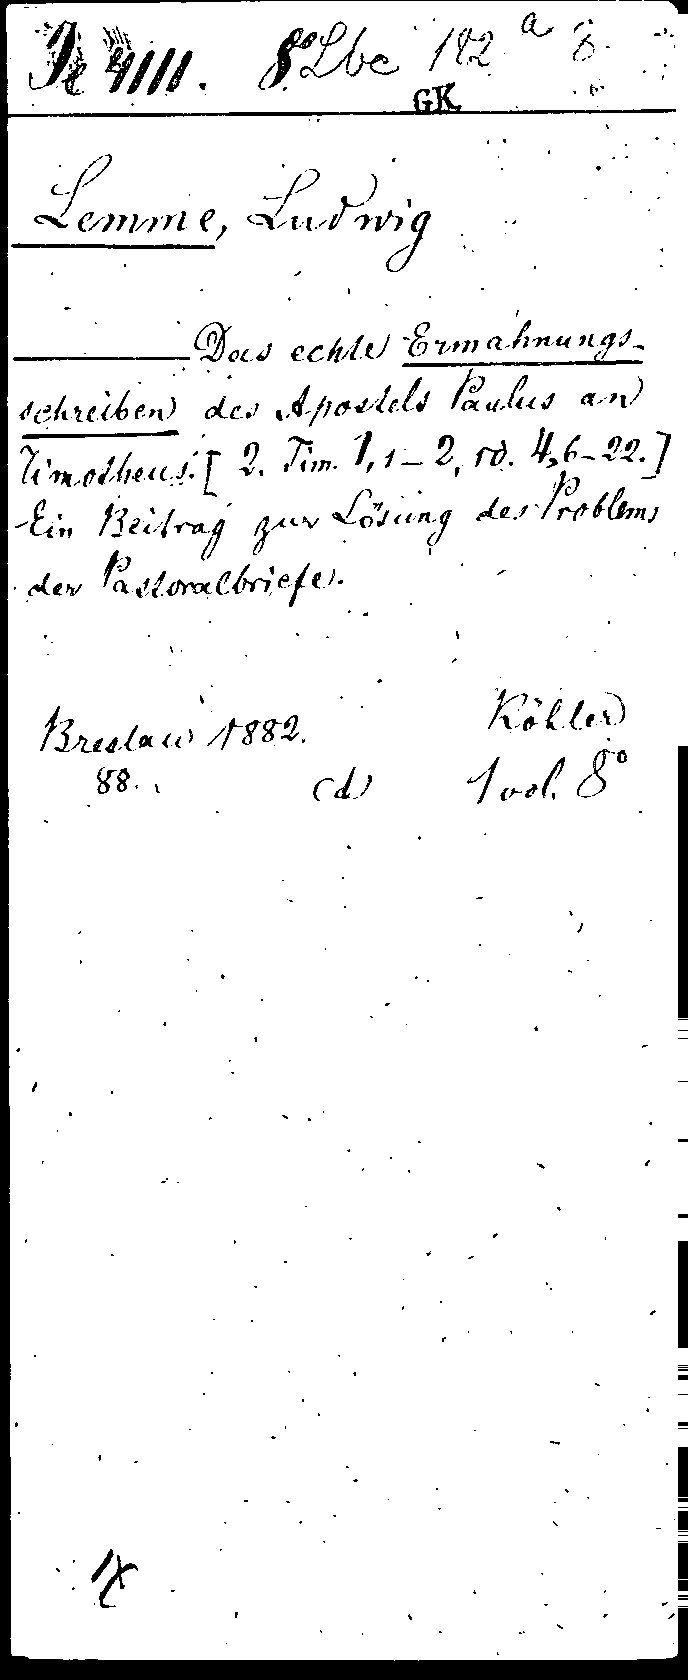 4111. 8° Lbc 182 a 8.
GK
Lemme, Ludwig
Das echte Ermahnungs-
schreiben des Apostels Paulus an
Timotheus. [2. Tim. 1, 1-2, 4, 6-22.]
Ein Beitrag zur Lösung des Problems
der Pastoralbriefe.
Breslau 1882. Köhler
88. (d) 1 vol. 8°